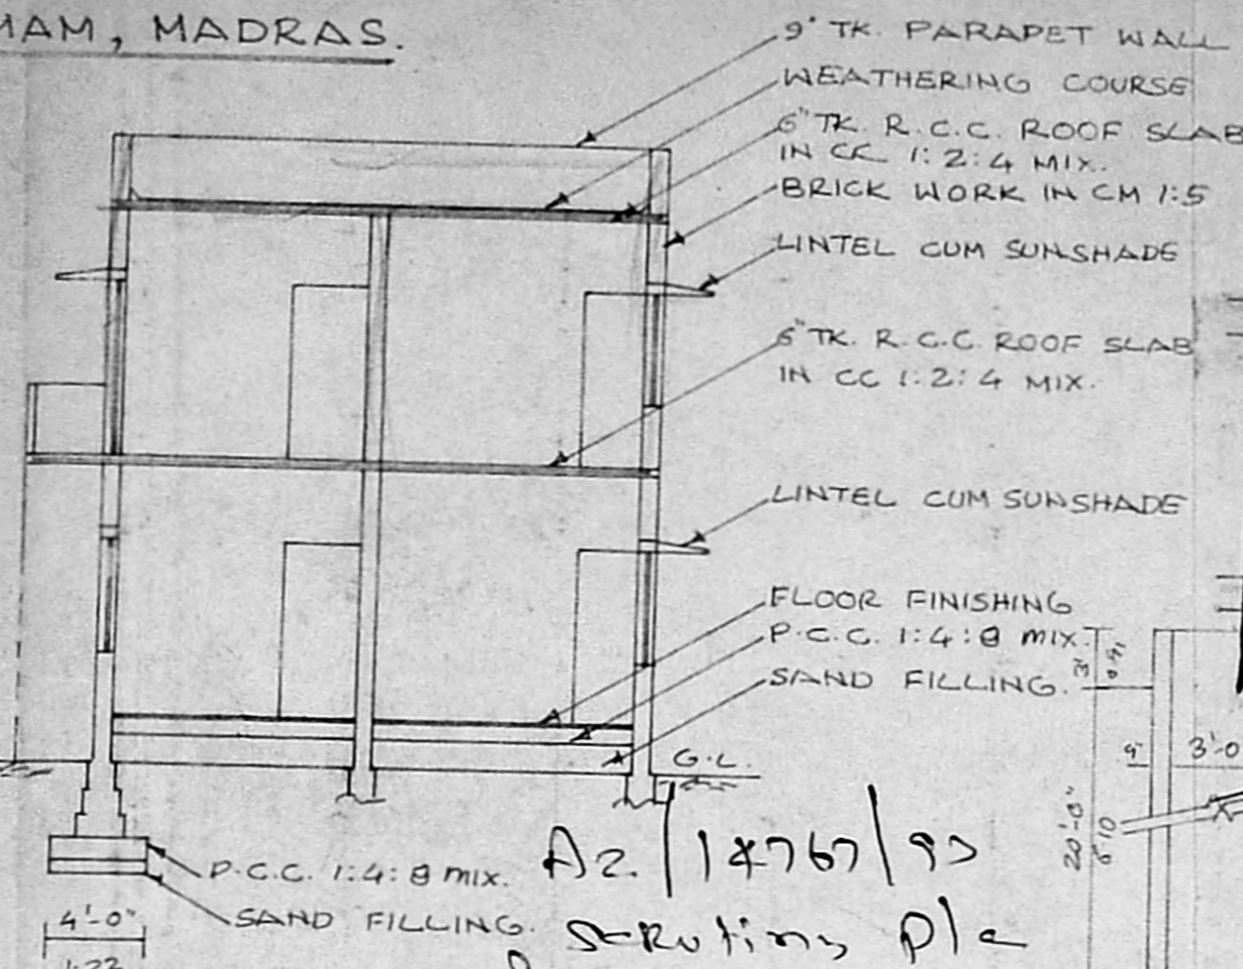 MAM, MADRAS.
9" TK. PARAPET WALL
WEATHERING COURSE
6" TK. R.C.C. ROOF SLAB
IN CC 1:2:4 MIX.
BRICK WORK IN CM 1:5
LINTEL CUM SUNSHADE
6" TK. R.C.C. ROOF SLAB
IN CC 1:2:4 MIX.
LINTEL CUM SUNSHADE
FLOOR FINISHING
P.C.C. 1:4:8 MIX.
SAND FILLING.
G.L.
3'
9"
3'-0
20'-0"
6.10
P.C.C. 1:4:8 MIX.
SAND FILLING.
4'-0"
1.22
A2/14767/93